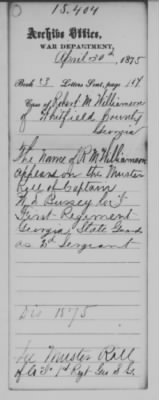 15.404
Archive Office,
WAR DEPARTMENT,
April 20th, 1875
Book 23 Letters Sent, page 147
Case of Robert M. Williamson
of Whitfield County
Georgia
The name of R M Williamson
appears on the Muster
Roll of Captain
First Regiment
Georgia State Guards
as 2d Sergeant
Dis 1875
See Muster Roll
of Co